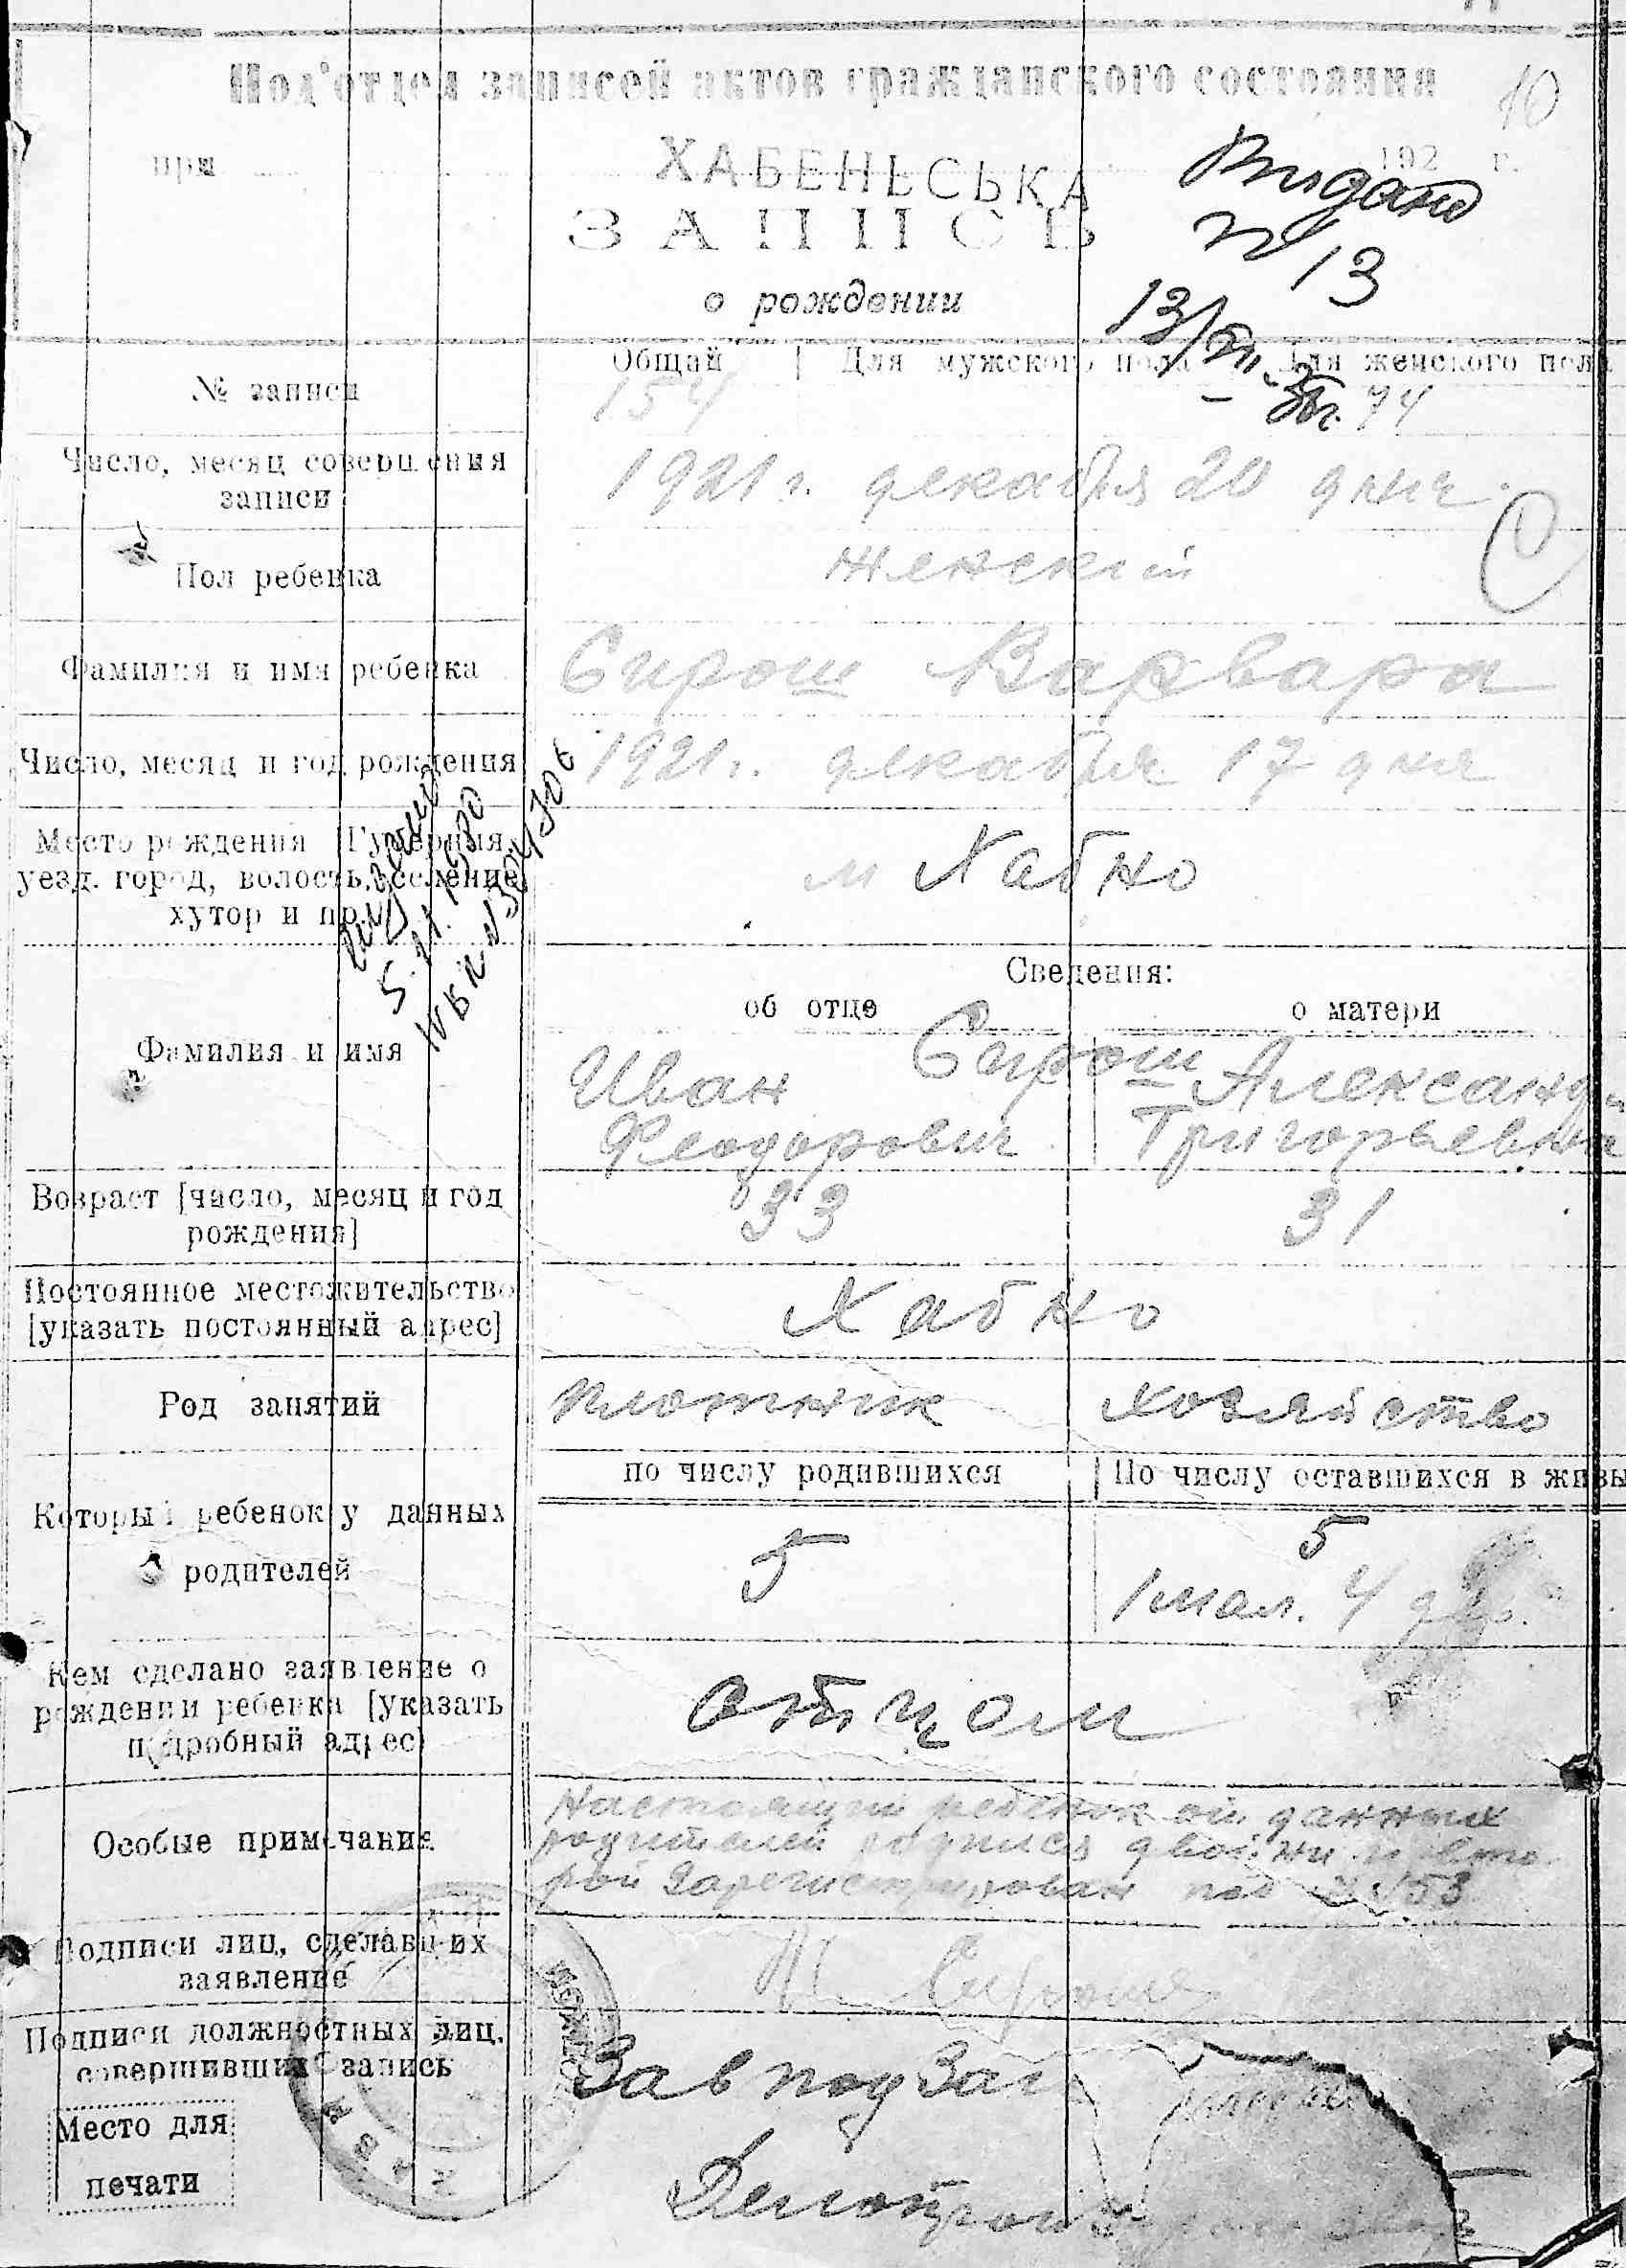 10
Под'отдел записей актов гражданского состояния
при 192 г.
ХАБЕНЬСЬКА
Видано
ЗАПИСЬ
№ 13
о рождении
13/
Общий Для мужского пола Для женского пола
№ записи 154 — 74
Число, месяц совершения
записи
1921 г. декабря 20 дня.
С
Пол ребенка женский
Фамилия и имя ребенка Сирош Варвара
Число, месяц и год рождения 1921 г. декабря 17 дня
Место рождения [Губерния,
уезд. город, волость, селение,
хутор и пр.]
м Хабно
5. 11. 1970
Сведения:
об отце о матери
Фамилия и имя
Сирош
Иван Александра
Феодорович Григорьевна
Возраст [число, месяц и год
рождения]
33 31
Постоянное местожительство
[указать постоянный адрес]
Хабно
Род занятий плотник хозяйство
по числу родившихся По числу оставшихся в живы
Который ребенок у данных
родителей
5 5
1 мал. 4
Кем сделано заявление о
рождении ребенка [указать
подробный адрес]
отцом
Особые примечания
Настоящий ребенок от данных
родителей родился двойни и вто
рой зарегистрирован под № 153
Подписи лиц, сделавших
заявление
Сирош
Подписи должностных лиц,
совершивших запись
Зав подЗаг
Место для
печати